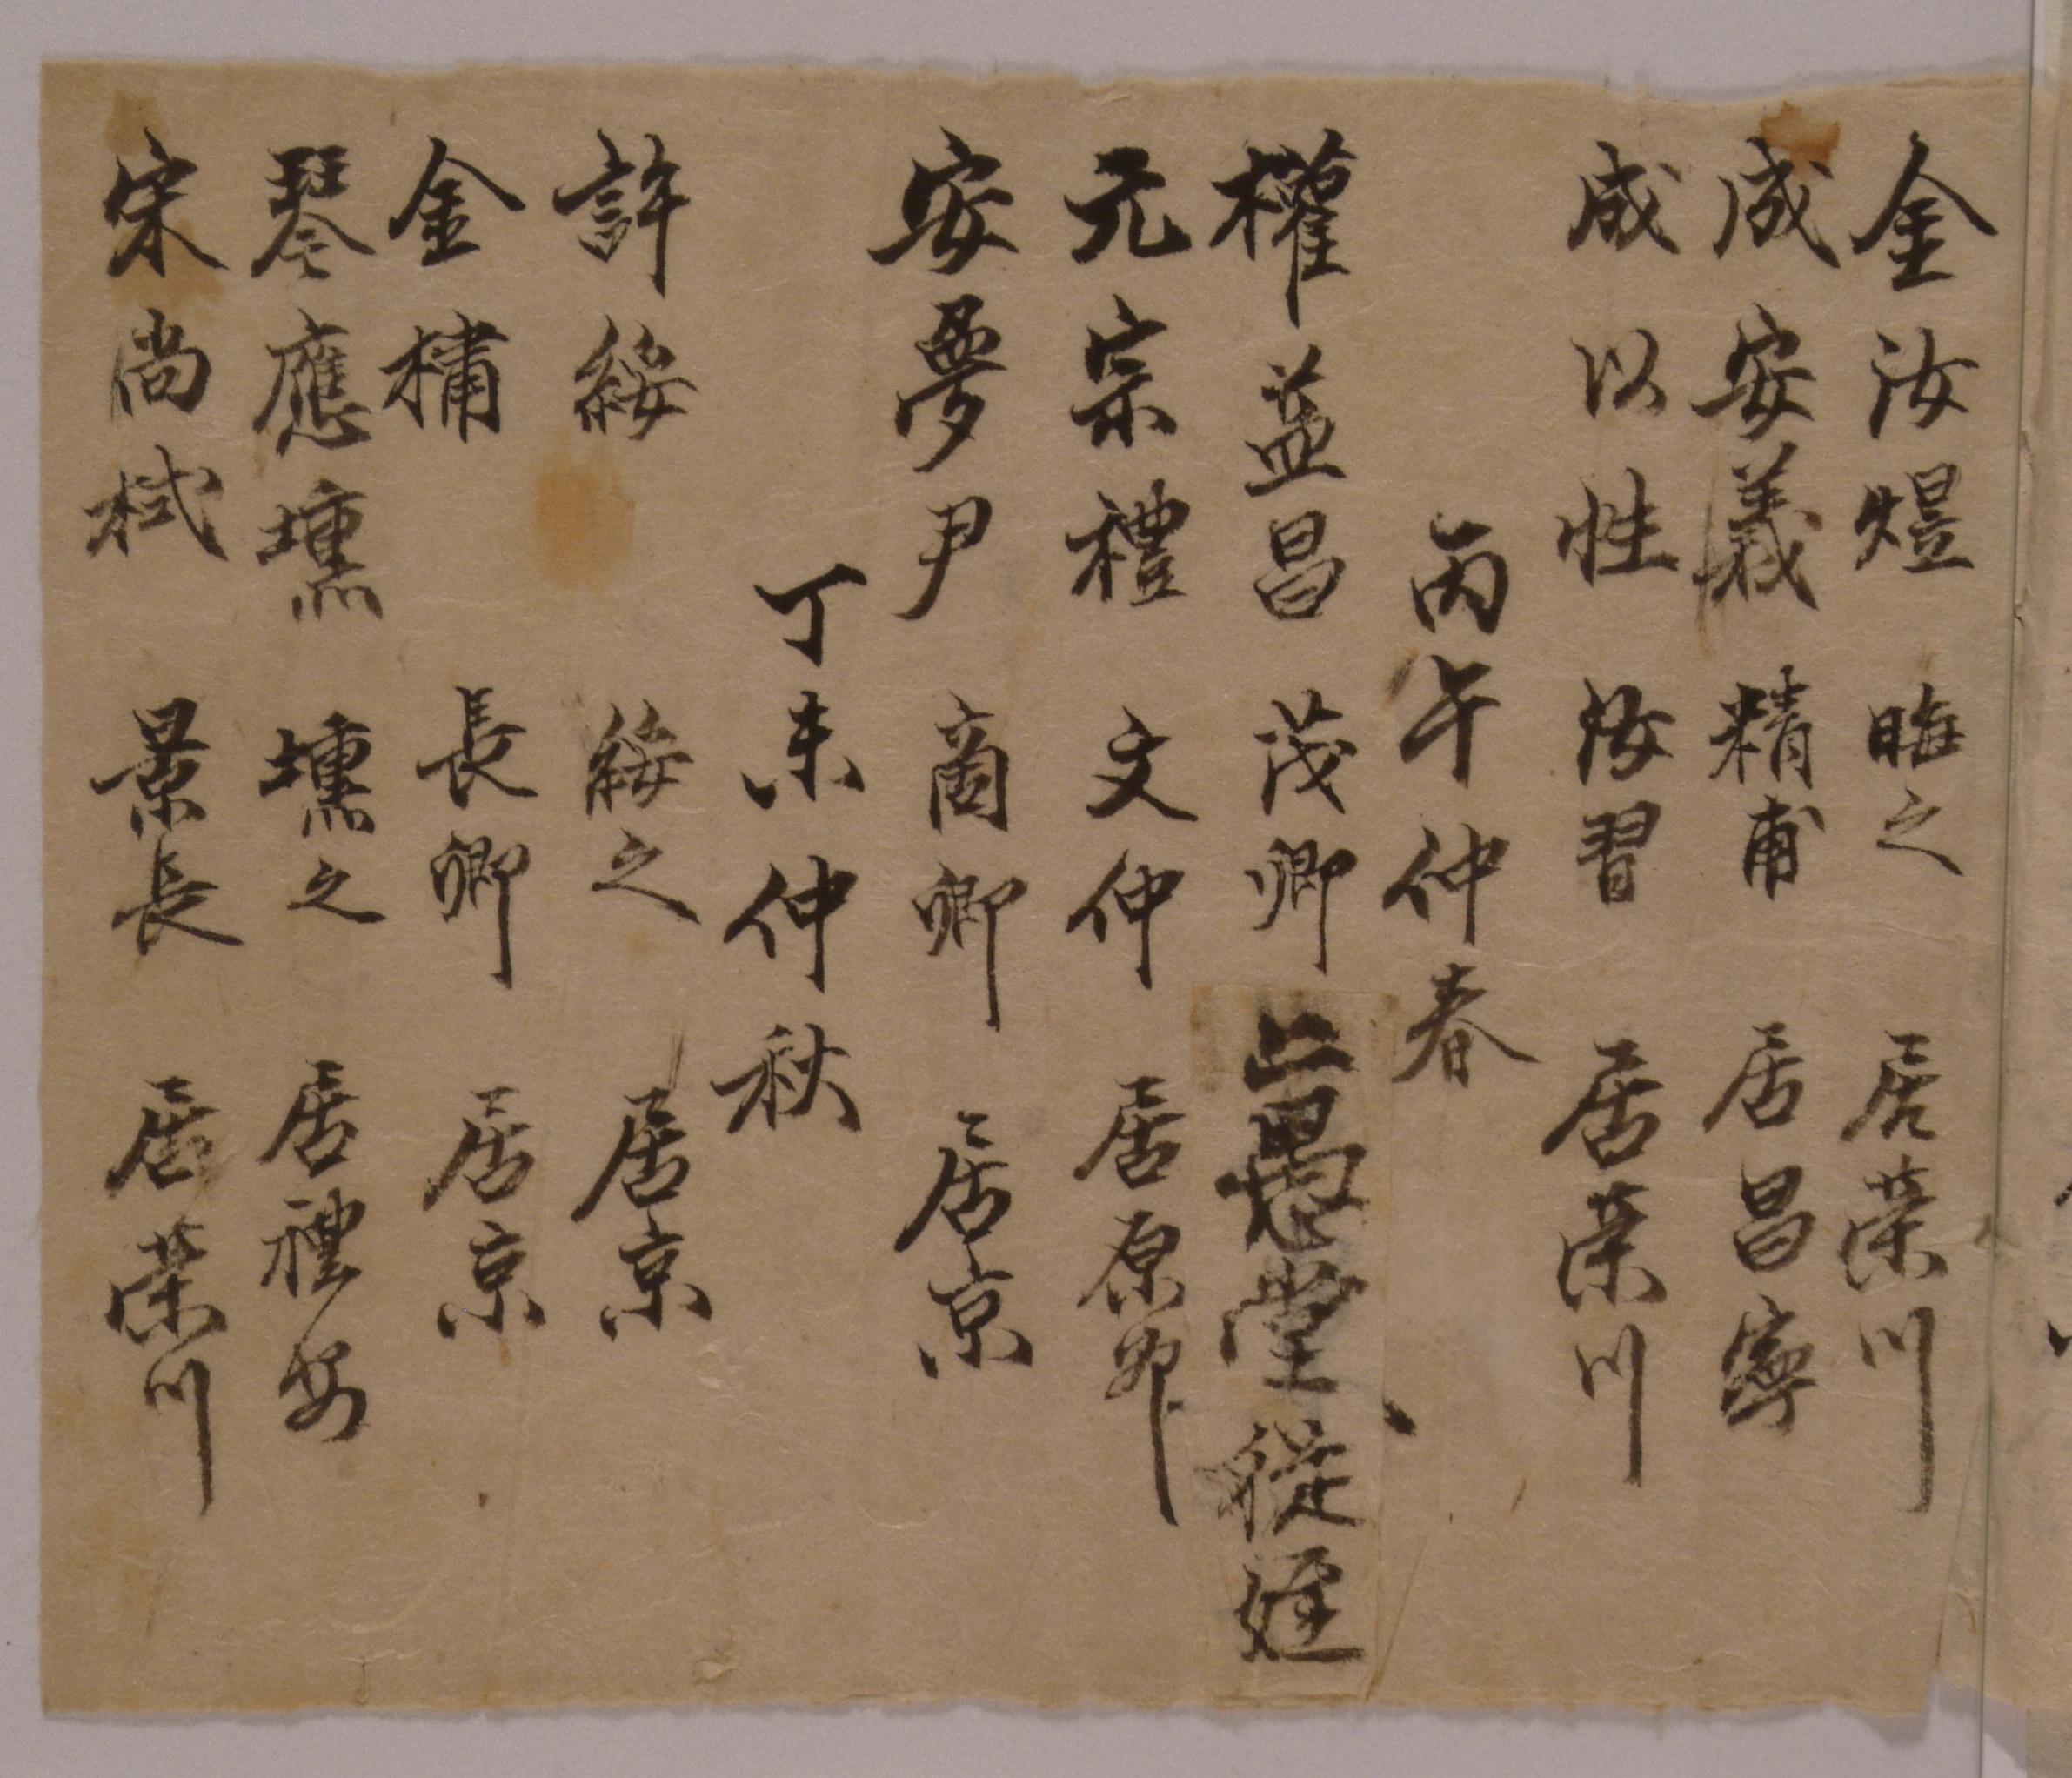 金汝煜 晦之 居榮川
成安義 精甫 居昌寧
成以性 汝習 居榮川
丙午仲春
權益昌 茂卿 二愚堂從姪
元宗禮 文仲 居原州
安夢尹 商卿 居京
丁未仲秋
許綏 綏之 居京
金橚 長卿 居京
琴應壎 壎之 居禮安
宋尚栻 景長 居榮川